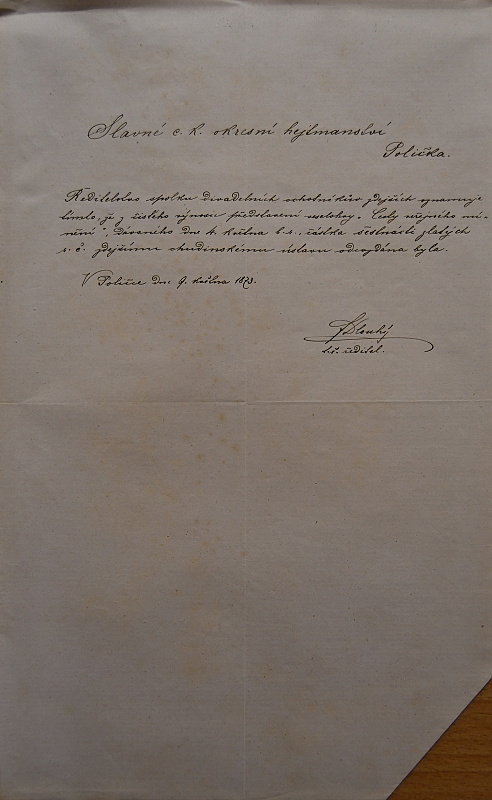 Slavné c. k. okresní hejtmanství
Polička.
Ředitelstvo spolku divadelních ochotníkův zdejších oznamuje
tímto, že z čistého výnosu představení veselohry „Cesty veřejného mí-
nění", dávaného dne 4. května t. r., částka šestnácti zlatých
r. č. zdejšímu chudinskému ústavu odevzdána byla.
V Poličce dne 9. května 1873.
Dlouhý
ředitel.